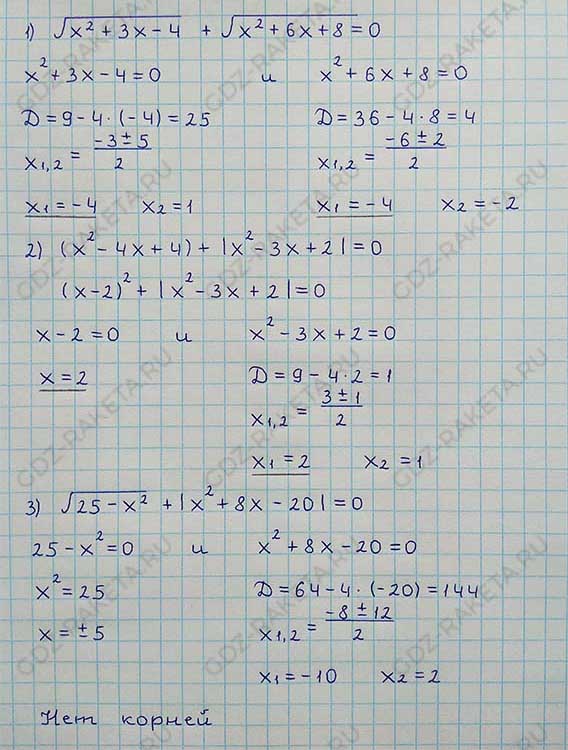 1) √(x² + 3x − 4) + √(x² + 6x + 8) = 0
x² + 3x − 4 = 0 и x² + 6x + 8 = 0
Д = 9 − 4 · (−4) = 25 Д = 36 − 4 · 8 = 4
x₁,₂ = (−3 ± 5)/2 x₁,₂ = (−6 ± 2)/2
x₁ = −4 x₂ = 1 x₁ = −4 x₂ = −2
2) (x² − 4x + 4) + |x² − 3x + 2| = 0
(x − 2)² + |x² − 3x + 2| = 0
x − 2 = 0 и x² − 3x + 2 = 0
x = 2 Д = 9 − 4 · 2 = 1
x₁,₂ = (3 ± 1)/2
x₁ = 2 x₂ = 1
3) √(25 − x²) + |x² + 8x − 20| = 0
25 − x² = 0 и x² + 8x − 20 = 0
x² = 25 Д = 64 − 4 · (−20) = 144
x = ± 5 x₁,₂ = (−8 ± 12)/2
x₁ = −10 x₂ = 2
Нет корней
GDZ-RAKETA.RU